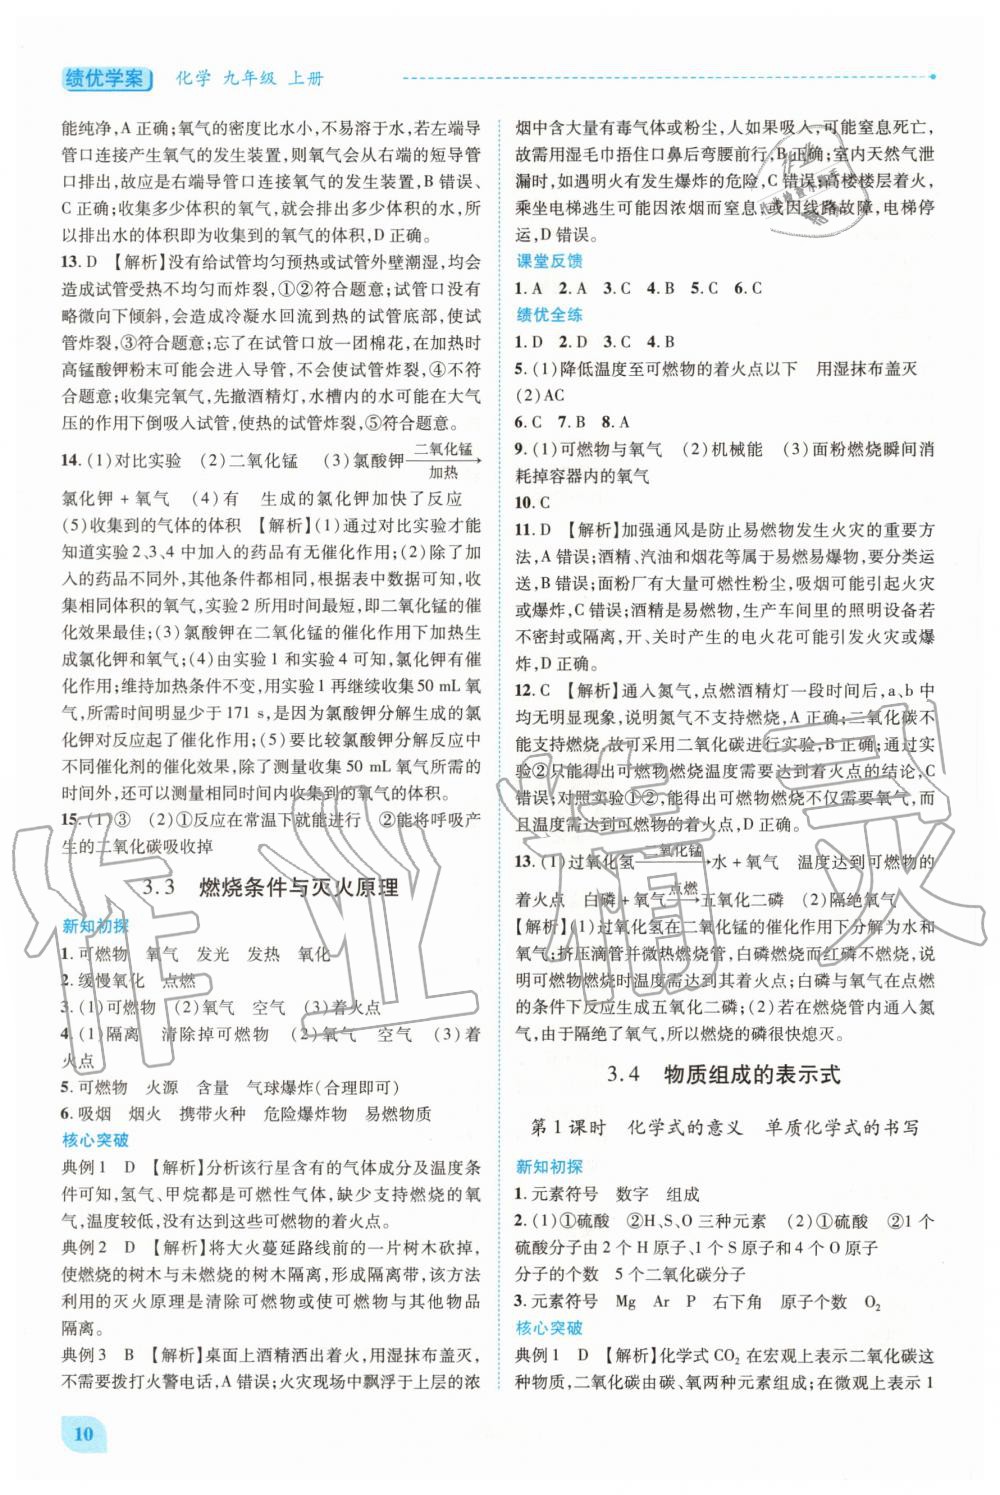 绩优学案 化学 九年级 上册
能纯净,A 正确;氧气的密度比水小,不易溶于水,若左端导
管口连接产生氧气的发生装置,则氧气会从右端的短导管
口排出,故应是右端导管口连接氧气的发生装置,B 错误、
C 正确;收集多少体积的氧气,就会排出多少体积的水,所
以排出水的体积即为收集到的氧气的体积,D 正确。
13. D 【解析】没有给试管均匀预热或试管外壁潮湿,均会
造成试管受热不均匀而炸裂,①②符合题意;试管口没有
略微向下倾斜,会造成冷凝水回流到热的试管底部,使试
管炸裂,③符合题意;忘了在试管口放一团棉花,在加热时
高锰酸钾粉末可能会进入导管,不会使试管炸裂,④不符
合题意;收集完氧气,先撤酒精灯,水槽内的水可能在大气
压的作用下倒吸入试管,使热的试管炸裂,⑤符合题意。
14. (1)对比实验 (2)二氧化锰 (3)氯酸钾 二氧化锰 加热 →
氯化钾 + 氧气 (4)有 生成的氯化钾加快了反应
(5)收集到的气体的体积 【解析】(1)通过对比实验才能
知道实验 2、3、4 中加入的药品有无催化作用;(2)除了加
入的药品不同外,其他条件都相同,根据表中数据可知,收
集相同体积的氧气,实验 2 所用时间最短,即二氧化锰的催
化效果最佳;(3)氯酸钾在二氧化锰的催化作用下加热生
成氯化钾和氧气;(4)由实验 1 和实验 4 可知,氯化钾有催
化作用;维持加热条件不变,用实验 1 再继续收集 50 mL 氧
气,所需时间明显少于 171 s,是因为氯酸钾分解生成的氯
化钾对反应起了催化作用;(5)要比较氯酸钾分解反应中
不同催化剂的催化效果,除了测量收集 50 mL 氧气所需的
时间外,还可以测量相同时间内收集到的氧气的体积。
15. (1)③ (2)①反应在常温下就能进行 ②能将呼吸产
生的二氧化碳吸收掉
3.3 燃烧条件与灭火原理
新知初探
1. 可燃物 氧气 发光 发热 氧化
2. 缓慢氧化 点燃
3. (1)可燃物 (2)氧气 空气 (3)着火点
4. (1)隔离 清除掉可燃物 (2)氧气 空气 (3)着
火点
5. 可燃物 火源 含量 气球爆炸(合理即可)
6. 吸烟 烟火 携带火种 危险爆炸物 易燃物质
核心突破
典例 1 D 【解析】分析该行星含有的气体成分及温度条
件可知,氢气、甲烷都是可燃性气体,缺少支持燃烧的氧
气,温度较低,没有达到这些可燃物的着火点。
典例 2 D 【解析】将大火蔓延路线前的一片树木砍掉,
使燃烧的树木与未燃烧的树木隔离,形成隔离带,该方法
利用的灭火原理是清除可燃物或使可燃物与其他物品
隔离。
典例 3 B 【解析】桌面上酒精洒出着火,用湿抹布盖灭,
不需要拨打火警电话,A 错误;火灾现场中飘浮于上层的浓
10
烟中含大量有毒气体或粉尘,人如果吸入,可能窒息死亡,
故需用湿毛巾捂住口鼻后弯腰前行,B 正确;室内天然气泄
漏时,如遇明火有发生爆炸的危险,C 错误;高楼楼层着火,
乘坐电梯逃生可能因浓烟而窒息,或因线路故障,电梯停
运,D 错误。
课堂反馈
1. A 2. A 3. C 4. B 5. C 6. C
绩优全练
1. D 2. D 3. C 4. B
5. (1)降低温度至可燃物的着火点以下 用湿抹布盖灭
(2)AC
6. C 7. B 8. A
9. (1)可燃物与氧气 (2)机械能 (3)面粉燃烧瞬间消
耗掉容器内的氧气
10. C
11. D 【解析】加强通风是防止易燃物发生火灾的重要方
法,A 错误;酒精、汽油和烟花等属于易燃易爆物,要分类运
送,B 错误;面粉厂有大量可燃性粉尘,吸烟可能引起火灾
或爆炸,C 错误;酒精是易燃物,生产车间里的照明设备若
不密封或隔离,开、关时产生的电火花可能引发火灾或爆
炸,D 正确。
12. C 【解析】通入氮气,点燃酒精灯一段时间后,a、b 中
均无明显现象,说明氮气不支持燃烧,A 正确;二氧化碳不
能支持燃烧,故可采用二氧化碳进行实验,B 正确;通过实
验②只能得出可燃物燃烧温度需要达到着火点的结论,C
错误;对照实验①②,能得出可燃物燃烧不仅需要氧气,而
且温度需达到可燃物的着火点,D 正确。
13. (1)过氧化氢 二氧化锰 → 水 + 氧气 温度达到可燃物的
着火点 白磷 + 氧气 点燃 → 五氧化二磷 (2)隔绝氧气
【解析】(1)过氧化氢在二氧化锰的催化作用下分解为水和
氧气;挤压滴管并微热燃烧管,白磷燃烧而红磷不燃烧,说
明可燃物燃烧时温度需达到其着火点;白磷与氧气在点燃
的条件下反应生成五氧化二磷;(2)若在燃烧管内通入氮
气,由于隔绝了氧气,所以燃烧的磷很快熄灭。
3.4 物质组成的表示式
第 1 课时 化学式的意义 单质化学式的书写
新知初探
1. 元素符号 数字 组成
2. (1)①硫酸 ②H、S、O 三种元素 (2)①硫酸 ②1 个
硫酸分子由 2 个 H 原子、1 个 S 原子和 4 个 O 原子构成
分子的个数 5 个二氧化碳分子
3. 元素符号 Mg Ar P 右下角 原子个数 O₂
核心突破
典例 1 D 【解析】化学式 CO₂ 在宏观上表示二氧化碳这
种物质,二氧化碳由碳、氧两种元素组成;在微观上表示 1
作业精灵